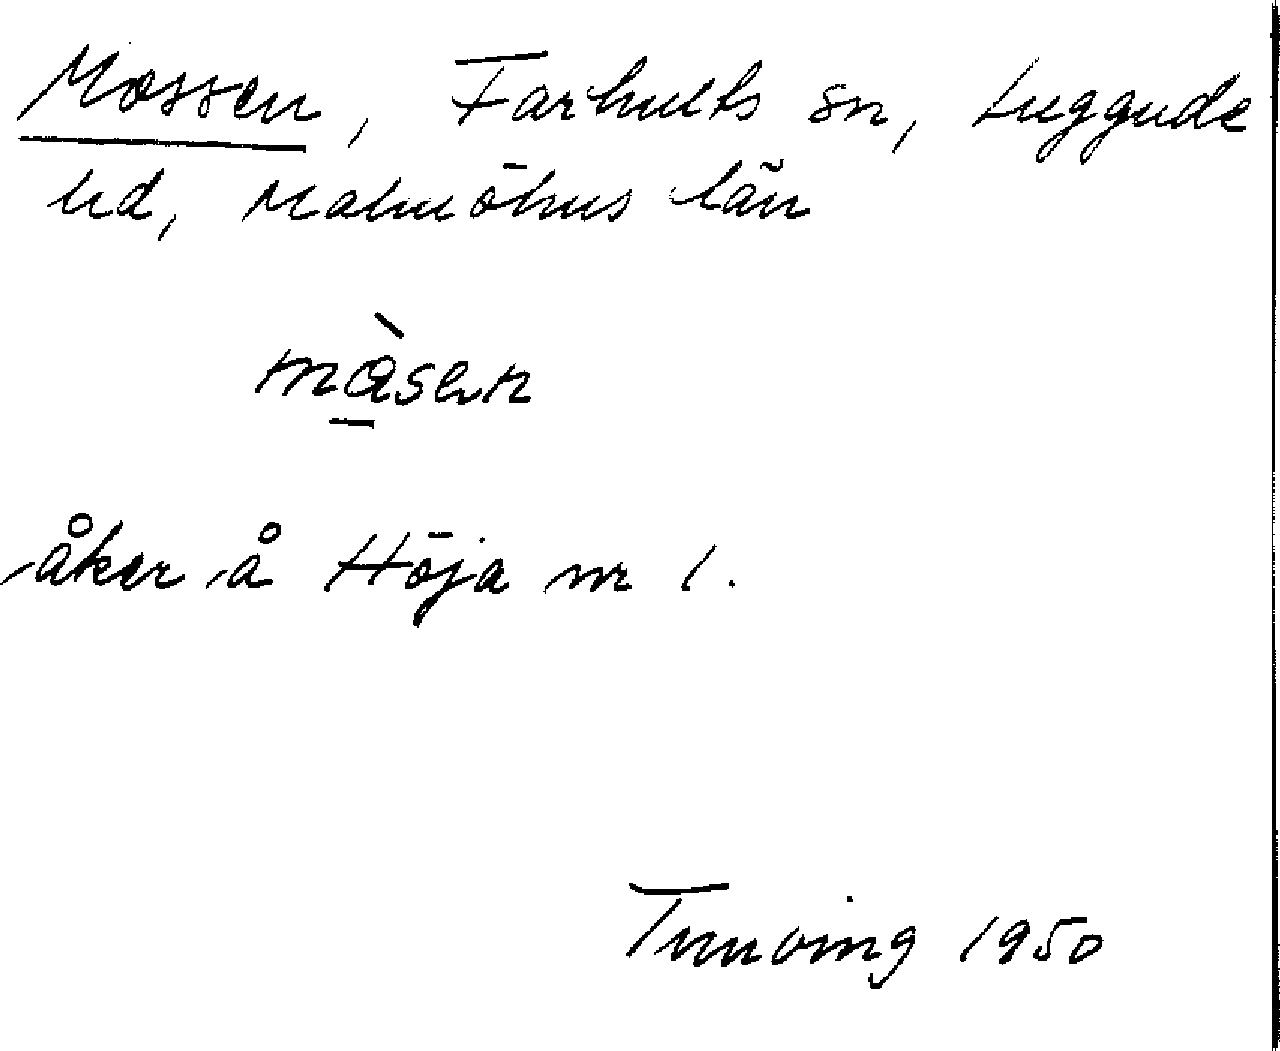 Mossen, Farhults sn, Luggude
hd, Malmöhus län
måsen
åker å Höja nr 1.
Tunving 1950